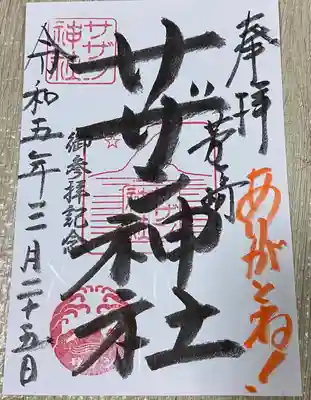 奉拝
茅ヶ崎
ありがとね!
サザン神社
御參拝記念
令和五年三月二十五日
サザン
神社